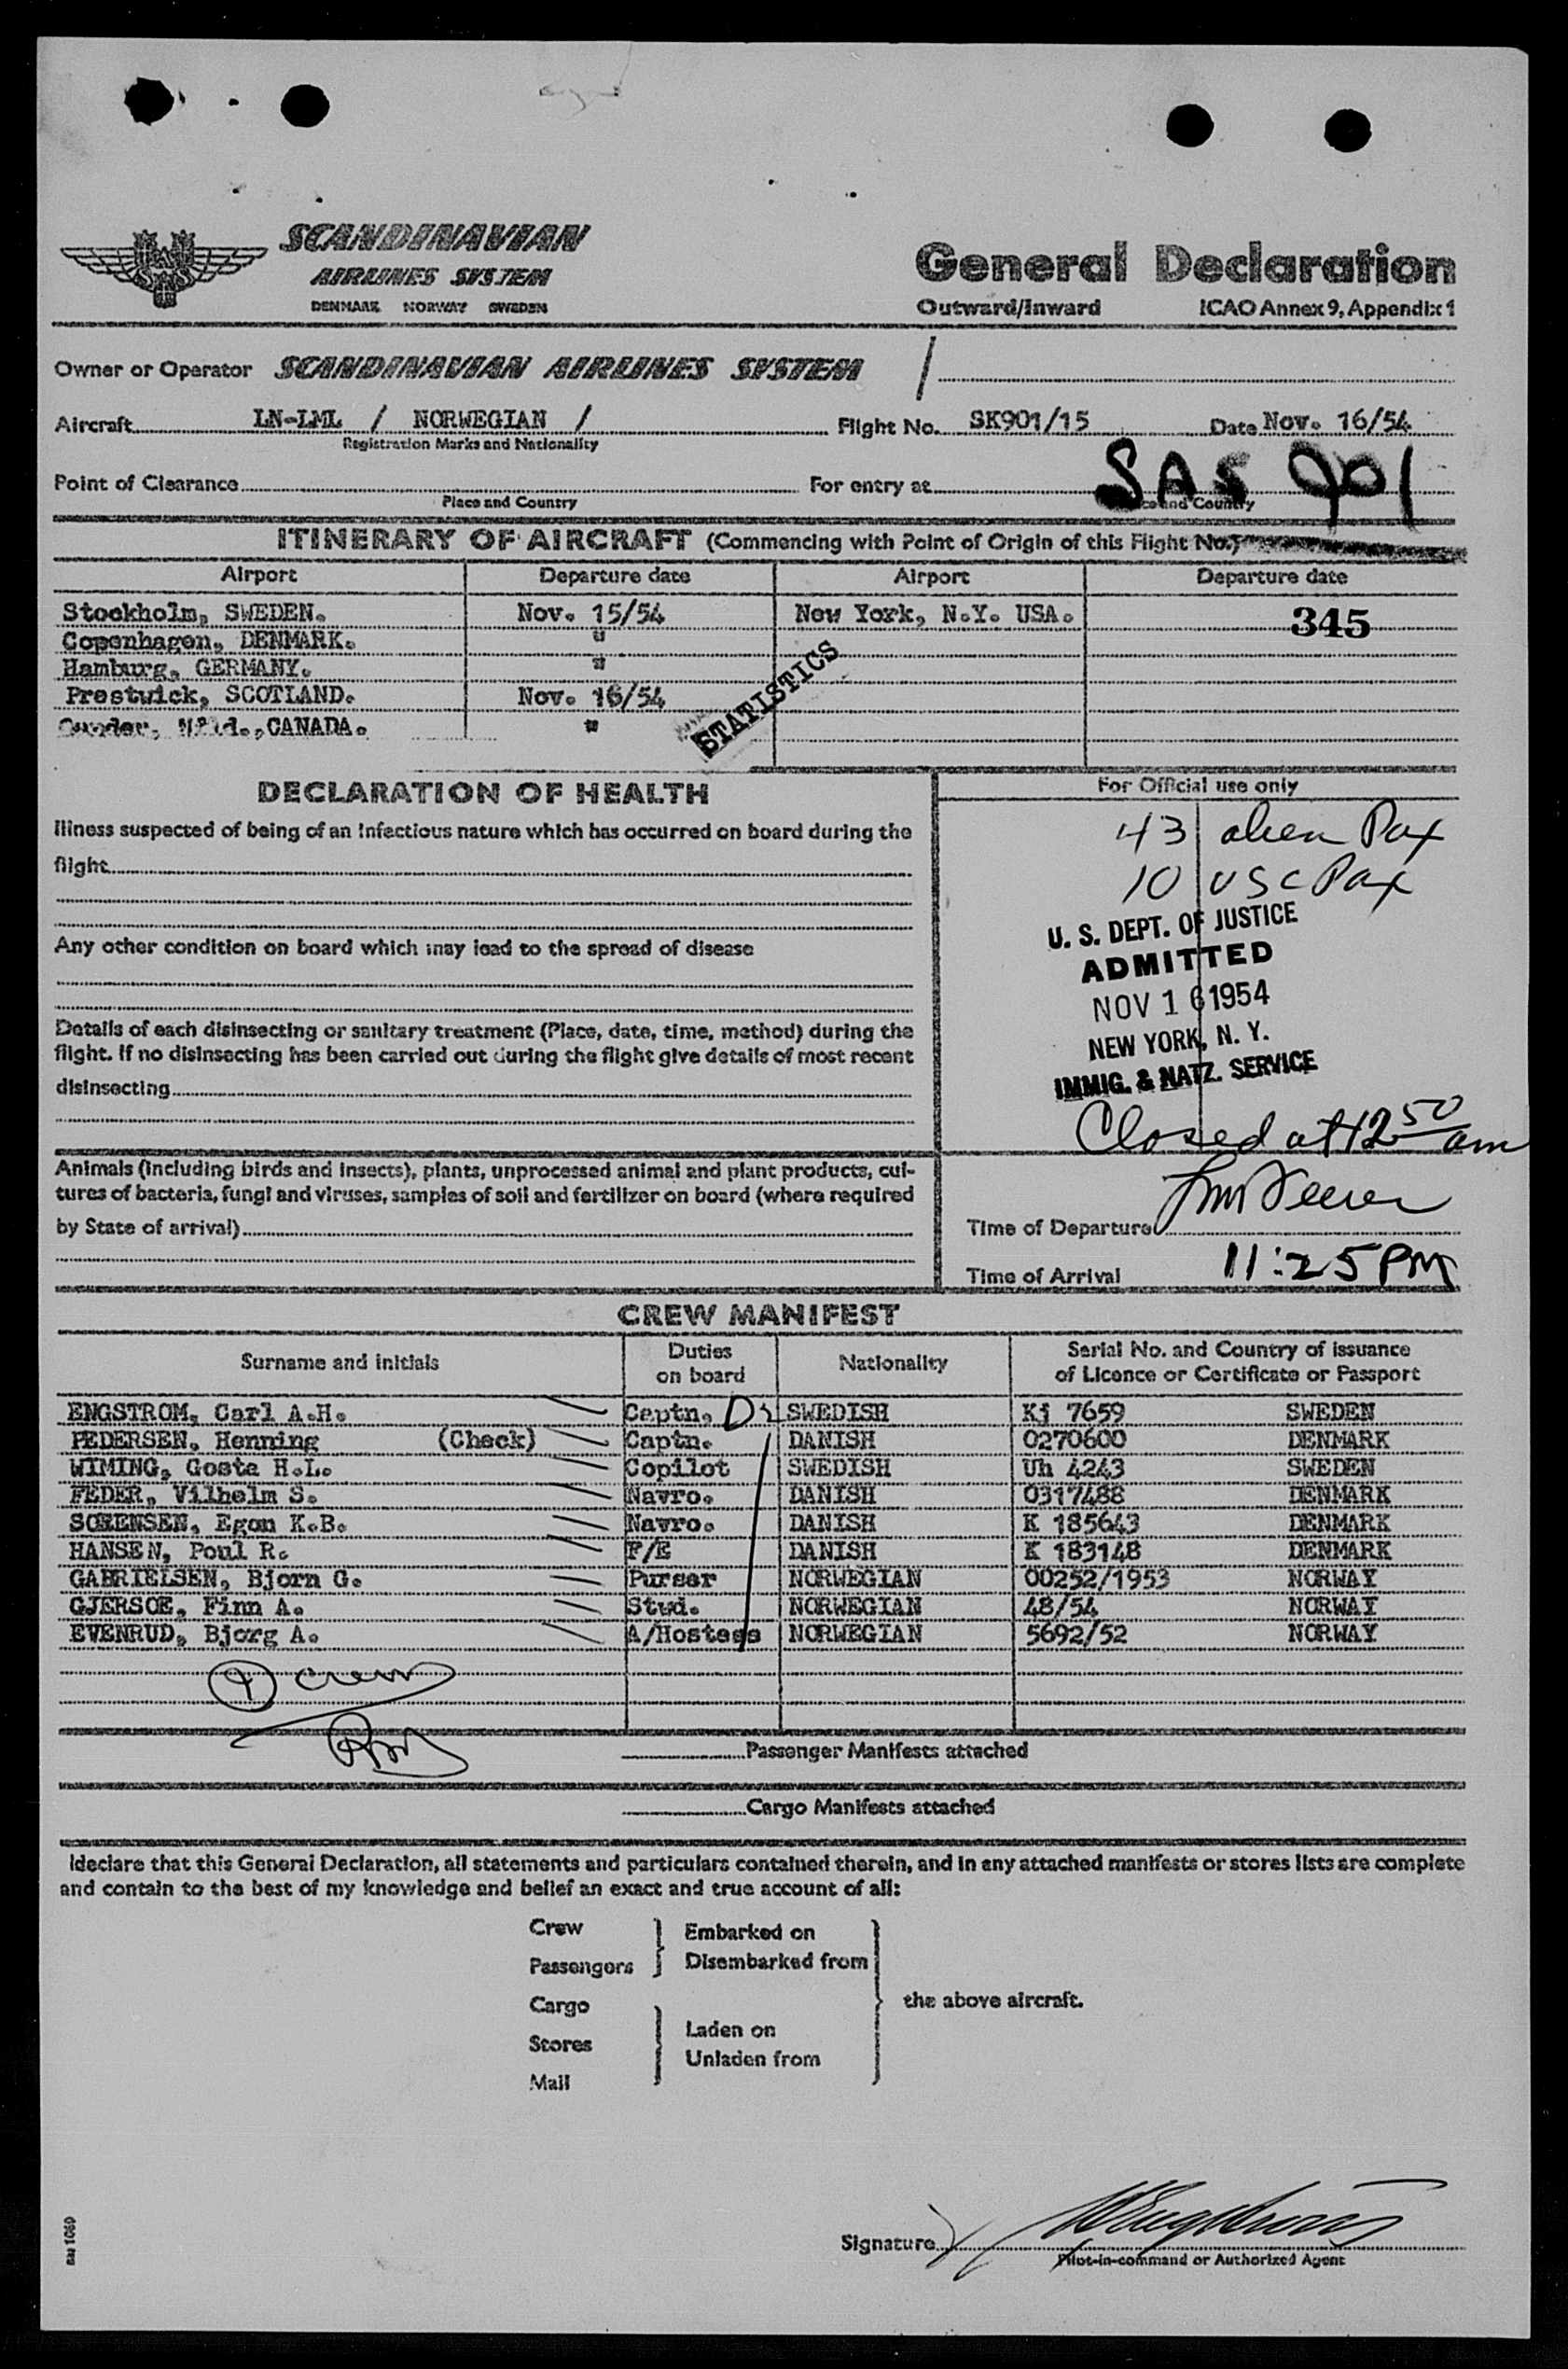 SCANDINAVIAN
AIRLINES SYSTEM
DENMARK NORWAY SWEDEN
General Declaration
Outward/Inward ICAO Annex 9, Appendix 1
Owner or Operator SCANDINAVIAN AIRLINES SYSTEM /
Aircraft LN-LML / NORWEGIAN / Flight No. SK901/15 Date Nov. 16/54
Registration Marks and Nationality
SAS 901
Point of Clearance For entry at
Place and Country and Country
ITINERARY OF AIRCRAFT (Commencing with Point of Origin of this Flight No.)
Airport Departure date Airport Departure date
Stockholm, SWEDEN. Nov. 15/54 New York, N.Y. USA. 345
Copenhagen, DENMARK. "
Hamburg, GERMANY. "
Prestwick, SCOTLAND. Nov. 16/54
Gander, Nfld., CANADA. "
STATISTICS
DECLARATION OF HEALTH
Illness suspected of being of an infectious nature which has occurred on board during the
flight
Any other condition on board which may lead to the spread of disease
Details of each disinsecting or sanitary treatment (Place, date, time, method) during the
flight. If no disinsecting has been carried out during the flight give details of most recent
disinsecting
Animals (including birds and insects), plants, unprocessed animal and plant products, cul-
tures of bacteria, fungi and viruses, samples of soil and fertilizer on board (where required
by State of arrival)
For Official use only
43 alien Pax
10 USC Pax
U. S. DEPT. OF JUSTICE
ADMITTED
NOV 16 1954
NEW YORK, N. Y.
IMMIG. & NATZ. SERVICE
Closed at 12 50 am
Time of Departure
Time of Arrival 11:25 PM
CREW MANIFEST
Surname and initials Duties on board Nationality Serial No. and Country of issuance of Licence or Certificate or Passport
ENGSTROM, Carl A.H. Captn. SWEDISH Kj 7659 SWEDEN
PEDERSEN, Henning (Check) Captn. DANISH 0270600 DENMARK
WIMING, Gosta H.L. Copilot SWEDISH Uh 4243 SWEDEN
FEDER, Vilhelm S. Navro. DANISH 0317488 DENMARK
SORENSEN, Egon K.B. Navro. DANISH K 185643 DENMARK
HANSEN, Poul R. F/E DANISH K 183148 DENMARK
GABRIELSEN, Bjorn G. Purser NORWEGIAN 00252/1953 NORWAY
GJERSOE, Finn A. Stud. NORWEGIAN 48/54 NORWAY
EVENRUD, Bjorg A. A/Hostess NORWEGIAN 5692/52 NORWAY
9 crew
Passenger Manifests attached
Cargo Manifests attached
I declare that this General Declaration, all statements and particulars contained therein, and in any attached manifests or stores lists are complete
and contain to the best of my knowledge and belief an exact and true account of all:
Crew
Passengers
Embarked on
Disembarked from
Cargo
Stores
Mail
Laden on
Unladen from
the above aircraft.
Signature
Pilot-in-command or Authorized Agent